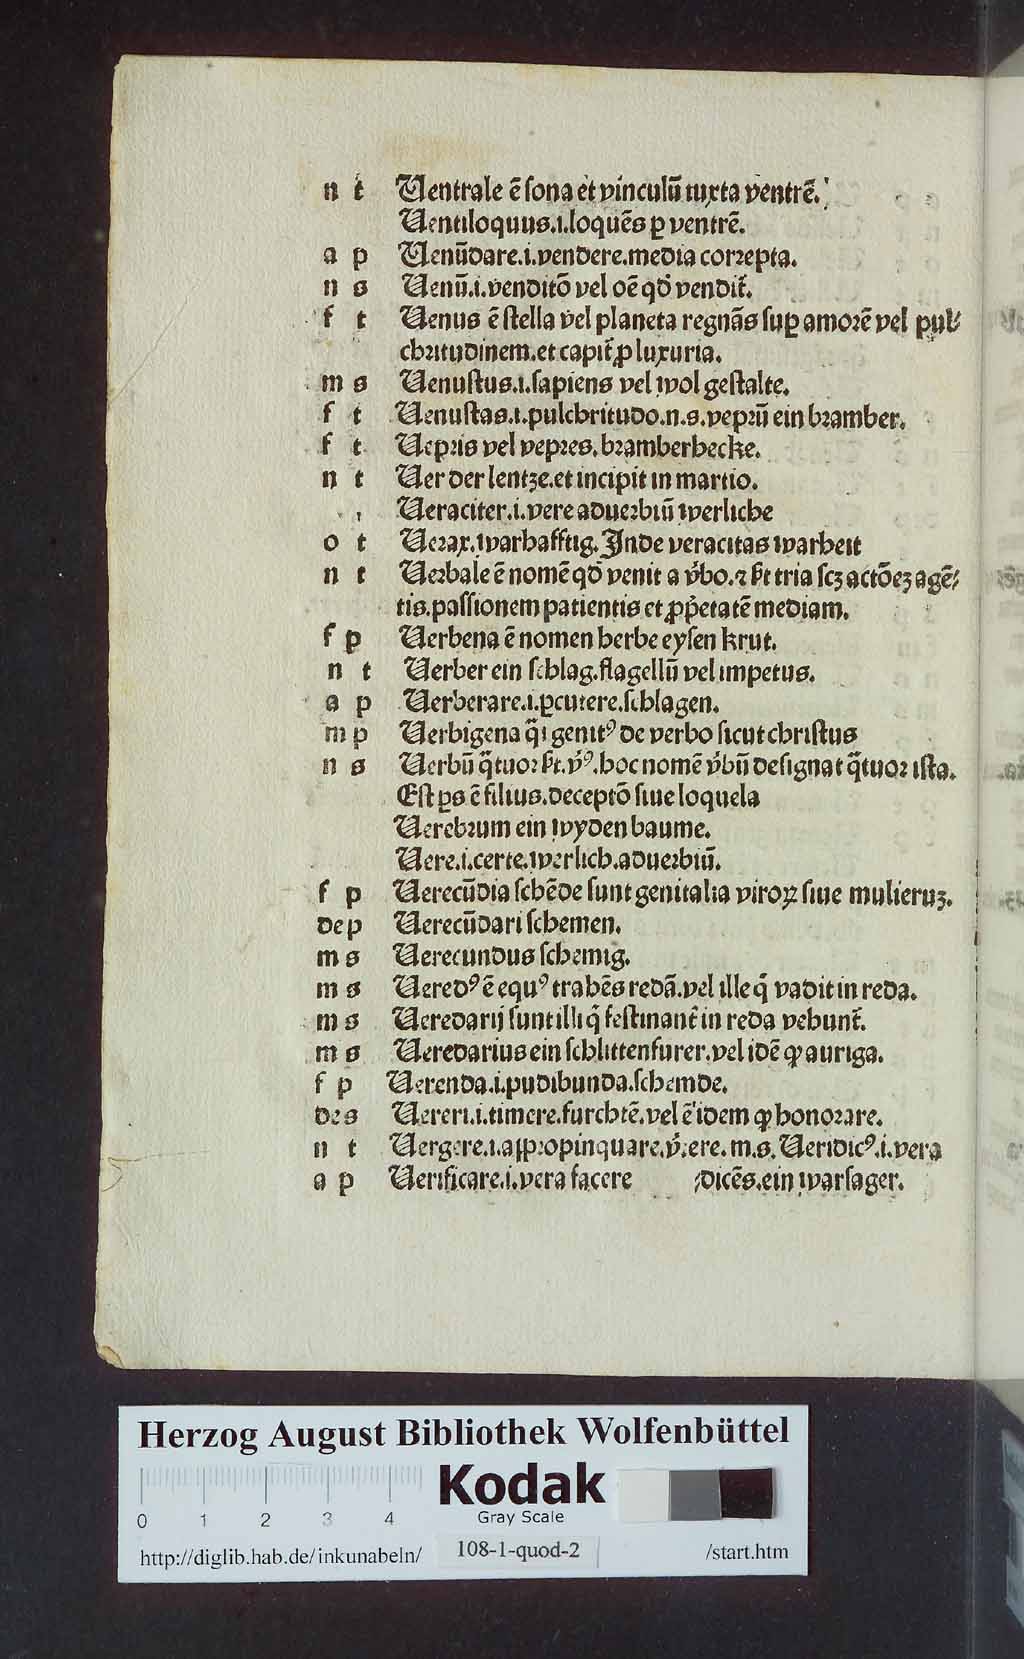 n t Uentrale ē sona et vinculū iuxta ventrē.
Uentiloquus.i.loquēs ꝑ ventrē.
a p Uenūdare.i.vendere.media correpta.
n s Uenū.i.venditō vel oē qđ vendit̄.
f t Uenus ē stella vel planeta regnās suꝑ amorē vel pul⸗
chritudinem.et capit̄ ꝓ luxuria.
m s Uenustus.i.sapiens vel wol gestalte.
f t Uenustas.i.pulchritudo.n.s.veprū ein bramber.
f t Uepris vel vepres.bramberhecke.
n t Uer der lentze.et incipit in martio.
Ueraciter.i.vere aduerbiū werliche
o t Uerax.warhafftig. Inde veracitas warheit
n t Uerbale ē nomē qđ venit a v̄bo.⁊ ht̄ tria scꝫ actōeꝫ agē⸗
tis.passionem patientis et ꝓp̄etatē mediam.
f p Uerbena ē nomen herbe eysen krut.
n t Uerber ein schlag.flagellū vel impetus.
a p Uerberare.i.ꝑcutere.schlagen.
m p Uerbigena q̄si genitꝰ de verbo sicut christus
n s Uerbū q̄tuor ht̄.v̄ꝰ.hoc nomē v̄bū designat q̄tuor ista.
Est ꝑs ē filius.deceptō siue loquela
Uerebrum ein wyden baume.
Uere.i.certe.werlich.aduerbiū.
f p Uerecūdia schēde sunt genitalia viroꝝ siue mulieruꝫ.
dep Uerecūdari schemen.
m s Uerecundus schemig.
m s Ueredꝰ ē equꝰ trahēs redā.vel ille q̄ vadit in reda.
m s Ueredarij sunt illi q̄ festinant̄ in reda vehunt̄.
m s Ueredarius ein schlittenfurer.vel idē ꝙ auriga.
f p Uerenda.i.pudibunda.schemde.
des Uereri.i.timere.furchtē.vel ē idem ꝙ honorare.
n t Uergere.i.appropinquare.v̄tere.m.s.Ueridicꝰ.i.vera
a p Uerificare.i.vera facere ⸗dicēs.ein warsager.
Herzog August Bibliothek Wolfenbüttel
Kodak
Gray Scale
0 1 2 3 4
http://diglib.hab.de/inkunabeln/ 108-1-quod-2 /start.htm